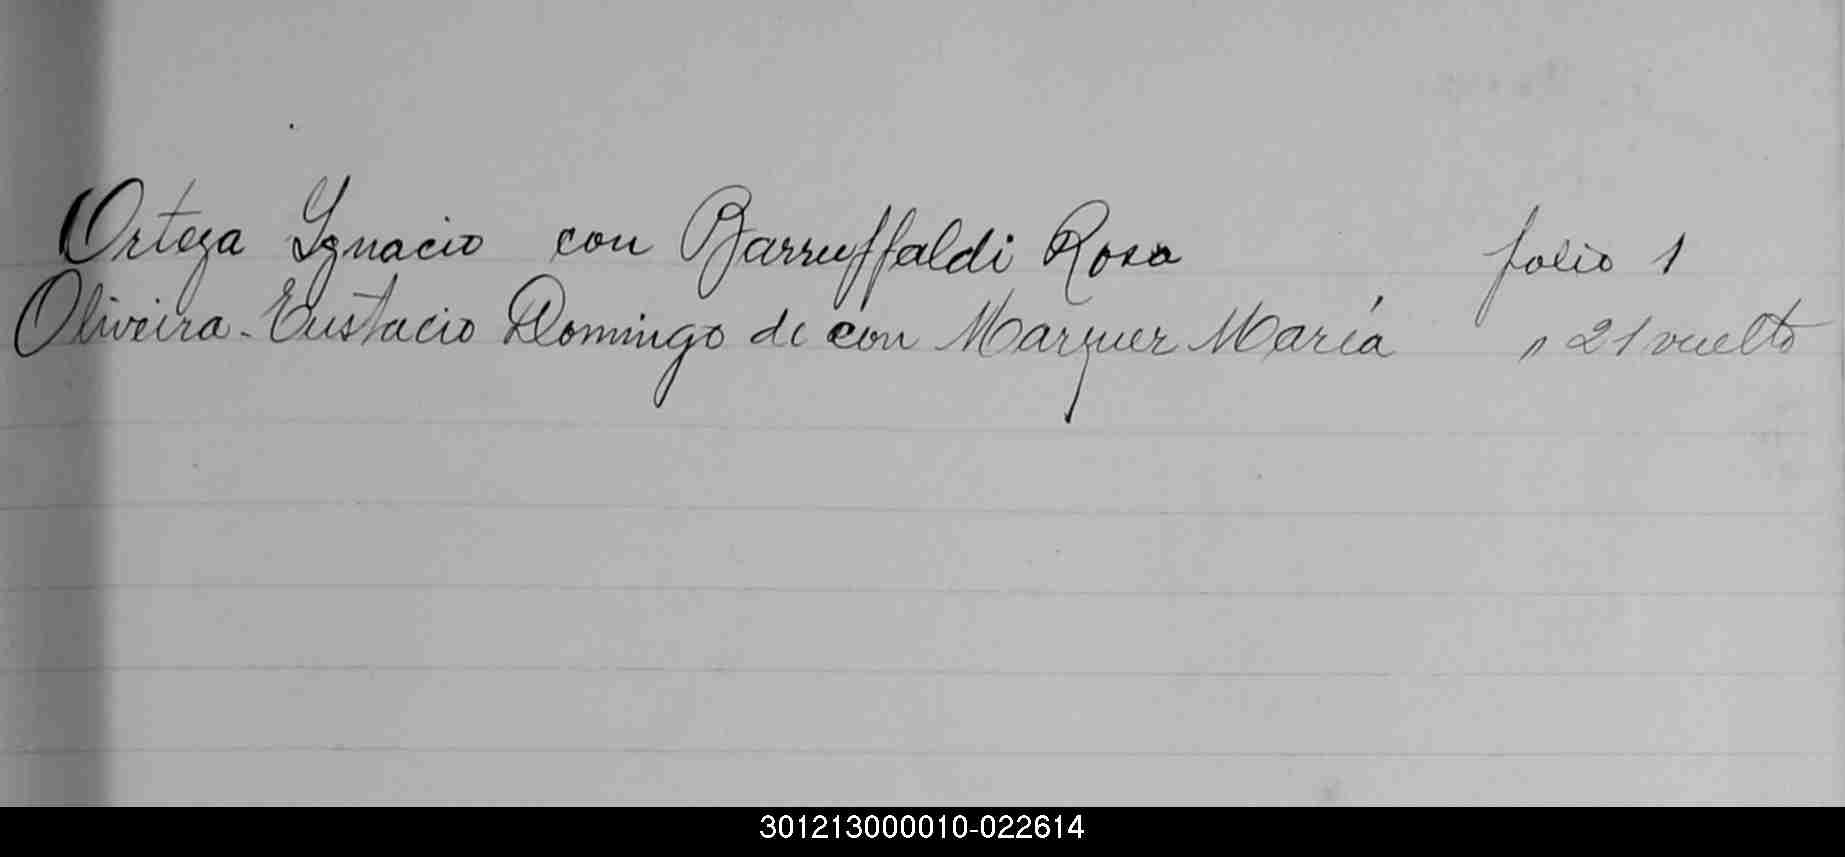 Ortega Ignacio con Barruffaldi Rosa folio 1
Oliveira - Eustacio Domingo de con Marquez María " 21 vuelto
301213000010-022614